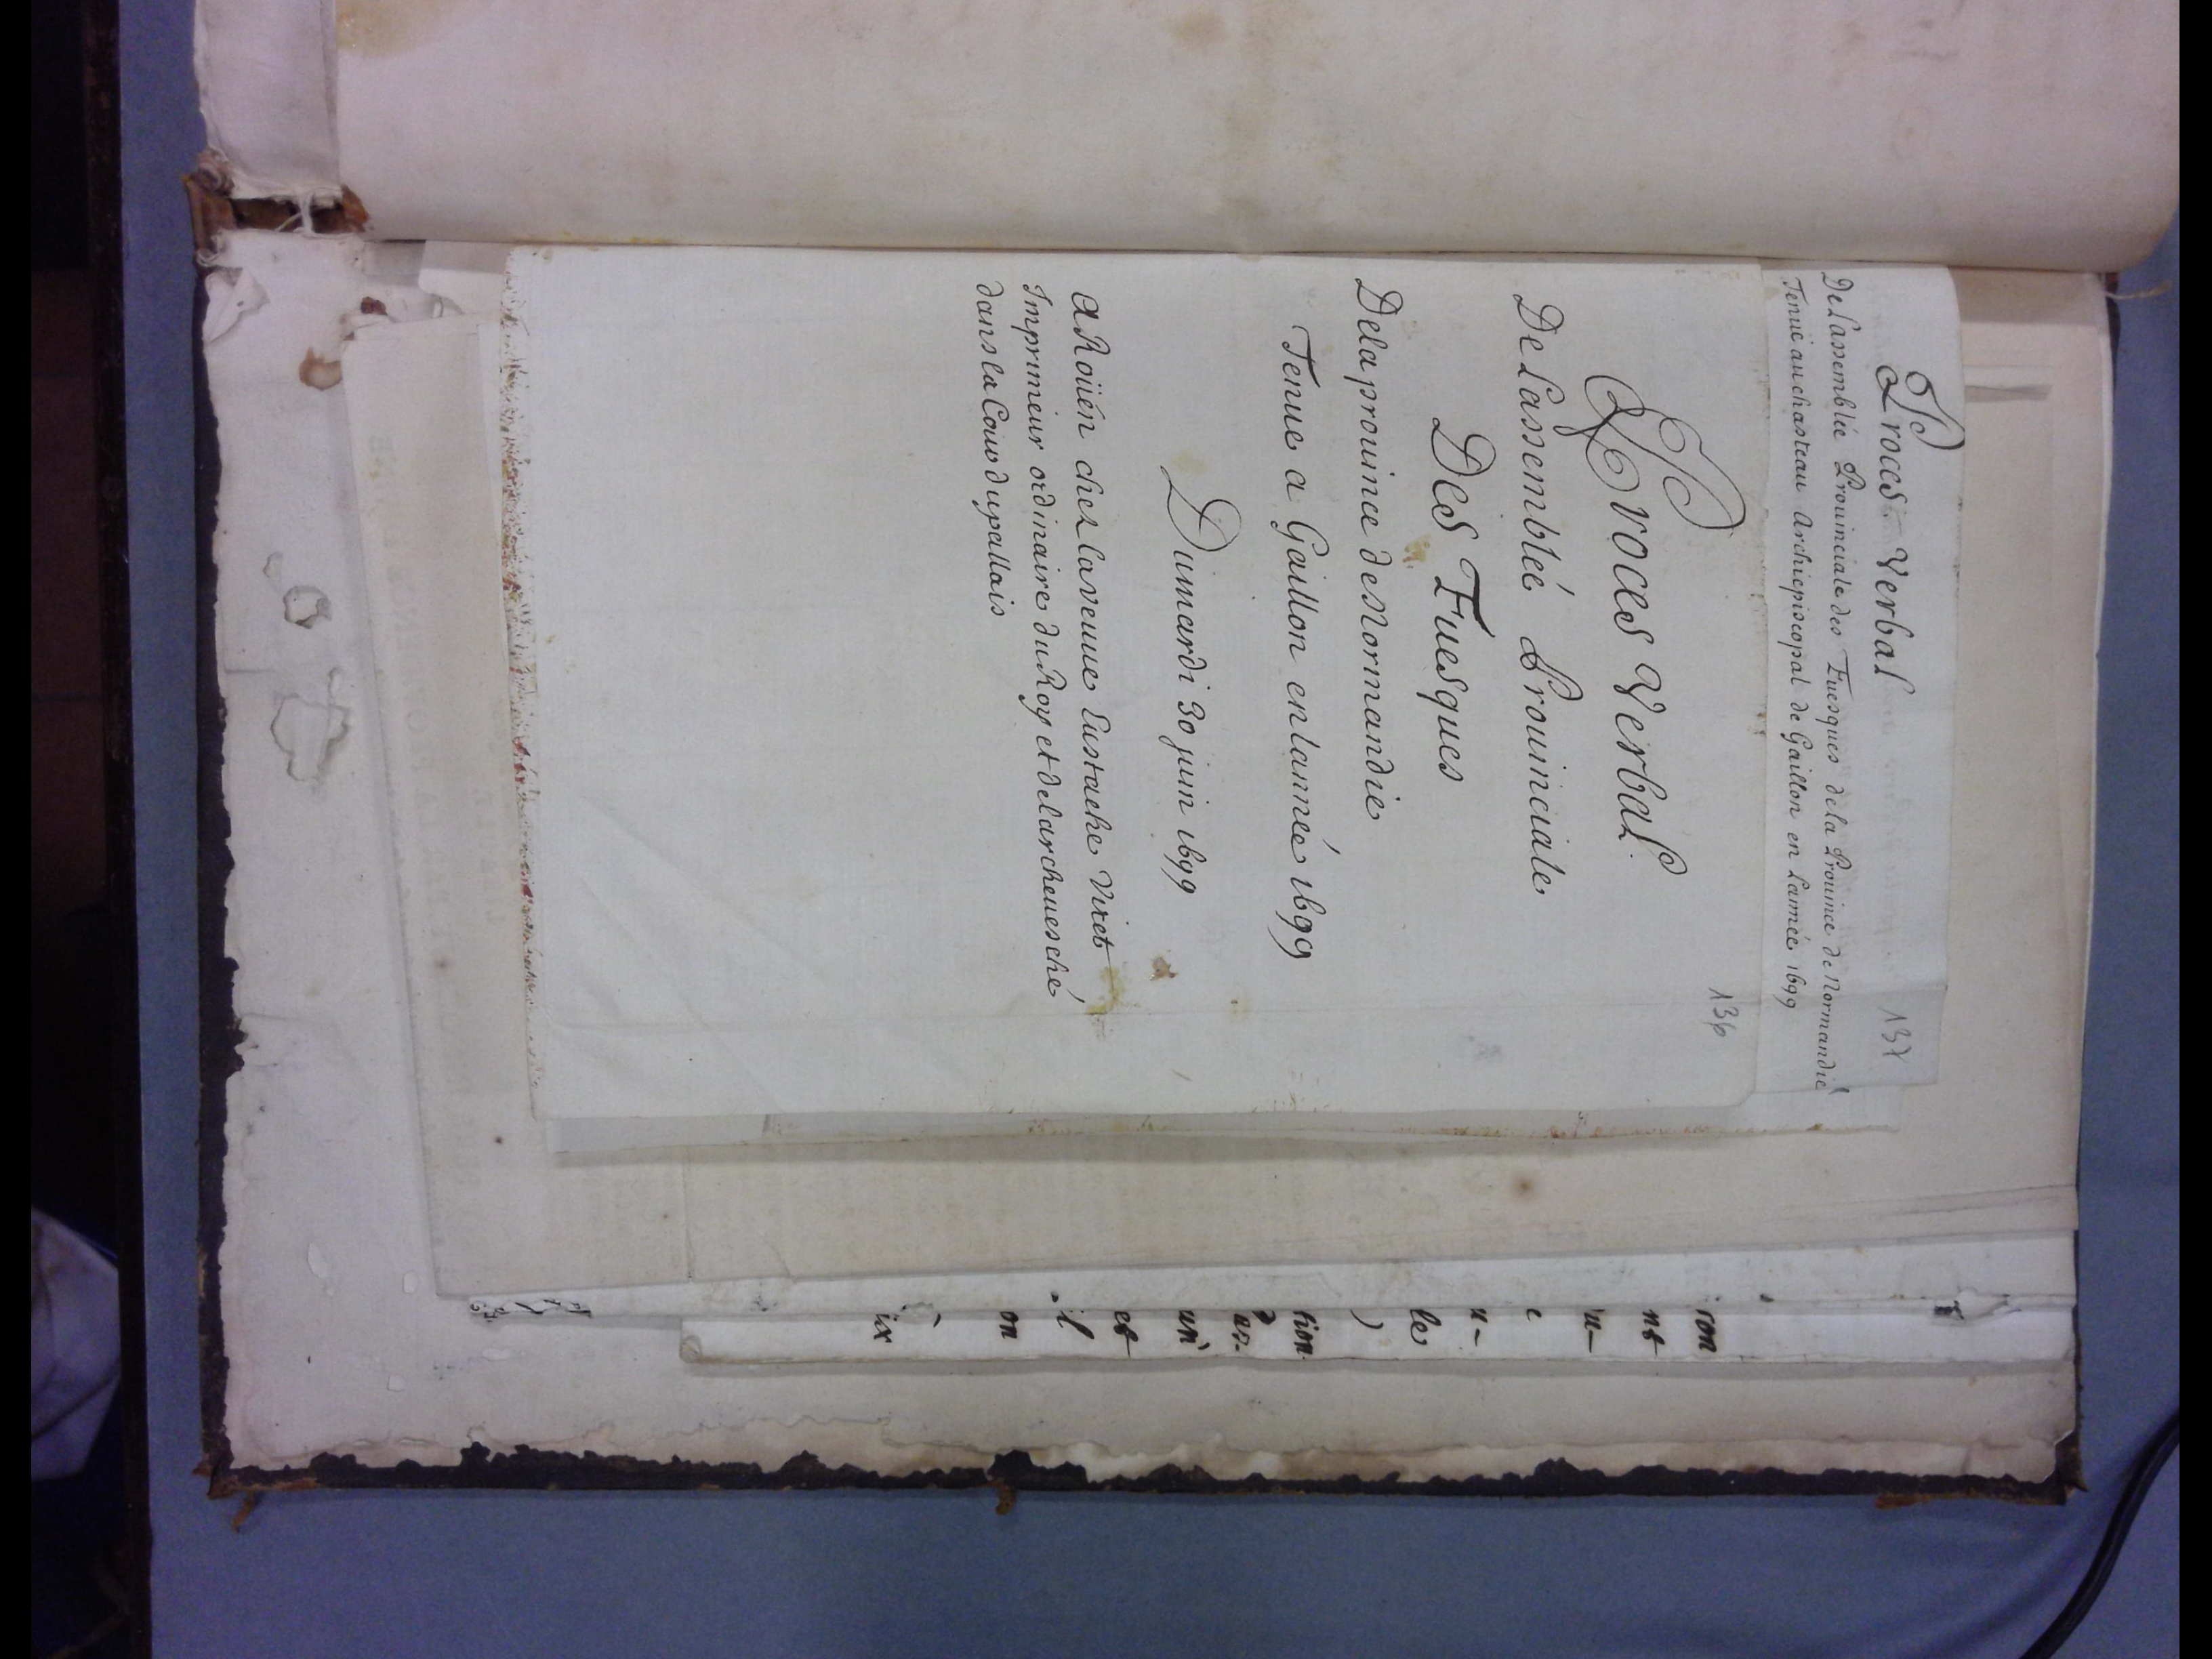 Proces Verbal
137
De Lassemblée Prouinciale des Euesques de la Prouince de Normandié
Tenüe au chasteau Archiepiscopal de Gaillon en Lannée 1699
136
Proces Verbal
De Lassembleé Prouinciale
Des Euesques
Dela prouince de Normandie
Tenue a Gaillon en lanneé 1699
Du mardi 30 juin 1699
a Roüen chez la veuue Eustache Viret
Imprimeur ordinaire du Roy et de larcheuesché
dans la Cour du pallais
ion
nt
u-
e
u-
le
)
tion
ar-
un
et
il
on
ix